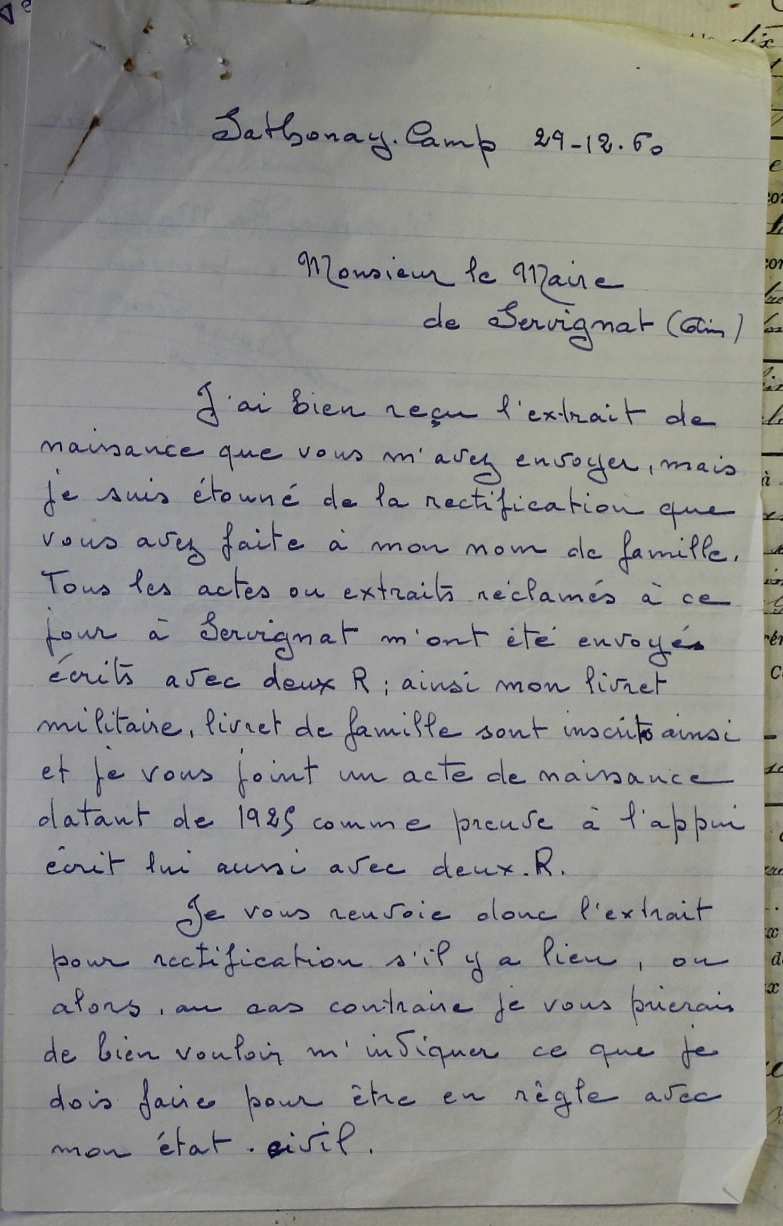 Sathonay-Camp 29-12.60
Monsieur le Maire
de Servignat (Ain)
J'ai bien reçu l'extrait de
naissance que vous m'avez envoyer, mais
je suis étonné de la rectification que
vous avez faite à mon nom de famille.
Tous les actes ou extraits réclamés à ce
jour à Servignat m'ont été envoyés
écrits avec deux R ; ainsi mon livret
militaire, livret de famille sont inscrits ainsi
et je vous joint un acte de naissance
datant de 1925 comme preuve à l'appui
écrit lui aussi avec deux R.
Je vous renvoie donc l'extrait
pour rectification s'il y a lieu, ou
alors, au cas contraire je vous prierais
de bien vouloir m'indiquer ce que je
dois faire pour être en règle avec
mon état-civil.